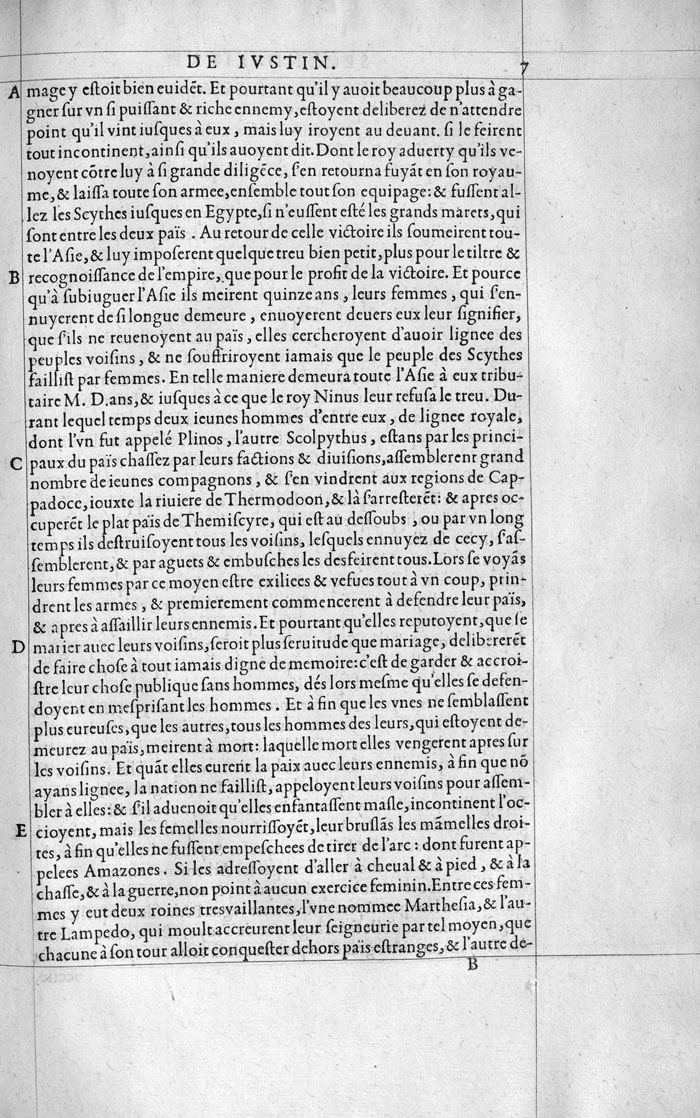 DE IVSTIN. 7
A mage y eſtoit bien euidẽt. Et pourtant qu'il y auoit beaucoup plus à ga-
gner ſur vn ſi puiſſant & riche ennemy, eſtoyent deliberez de n'attendre
point qu'il vint iuſques à eux, mais luy iroyent au deuant. ſi le feirent
tout incontinent, ainſi qu'ils auoyent dit. Dont le roy aduerty qu'ils ve-
noyent cõtre luy à ſi grande diligẽce, ſ'en retourna fuyãt en ſon royau-
me, & laiſſa toute ſon armee, enſemble tout ſon equipage: & fuſſent al-
lez les Scythes iuſques en Egypte, ſi n'euſſent eſté les grands marets, qui
ſont entre les deux païs. Au retour de celle victoire ils ſoumeirent tou-
te l'Aſie, & luy impoſerent quelque treu bien petit, plus pour le tiltre &
B recognoiſſance de l'empire, que pour le profit de la victoire. Et pource
qu'à ſubiuguer l'Aſie ils meirent quinze ans, leurs femmes, qui ſ'en-
nuyerent de ſi longue demeure, enuoyerent deuers eux leur ſignifier,
que ſ'ils ne reuenoyent au païs, elles cercheroyent d'auoir lignee des
peuples voiſins, & ne ſouffriroyent iamais que le peuple des Scythes
failliſt par femmes. En telle maniere demeura toute l'Aſie à eux tribu-
taire M. D. ans, & iuſques à ce que le roy Ninus leur refuſa le treu. Du-
rant lequel temps deux ieunes hommes d'entre eux, de lignee royale,
dont l'vn fut appelé Plinos, l'autre Scolpythus, eſtans par les princi-
C paux du païs chaſſez par leurs factions & diuiſions, aſſemblerent grand
nombre de ieunes compagnons, & ſ'en vindrent aux regions de Cap-
padoce, iouxte la riuiere de Thermodoon, & là ſ'arreſterẽt: & apres oc-
cuperẽt le plat païs de Themiſcyre, qui eſt au deſſoubs, ou par vn long
temps ils deſtruiſoyent tous les voiſins, leſquels ennuyez de cecy, ſ'aſ-
ſemblerent, & par aguets & embuſches les desfeirent tous. Lors ſe voyãs
leurs femmes par ce moyen eſtre exilees & vefues tout à vn coup, prin-
drent les armes, & premierement commencerent à defendre leur païs,
& apres à aſſaillir leurs ennemis. Et pourtant qu'elles reputoyent, que ſe
D marier auec leurs voiſins, ſeroit plus ſeruitude que mariage, delibererẽt
de faire choſe à tout iamais digne de memoire: c'eſt de garder & accroi-
ſtre leur choſe publique ſans hommes, dés lors meſme qu'elles ſe defen-
doyent en meſpriſant les hommes. Et à fin que les vnes ne ſemblaſſent
plus eureuſes, que les autres, tous les hommes des leurs, qui eſtoyent de-
meurez au païs, meirent à mort: laquelle mort elles vengerent apres ſur
les voiſins. Et quãt elles eurent la paix auec leurs ennemis, à fin que nõ
ayans lignee, la nation ne failliſt, appeloyent leurs voiſins pour aſſem-
bler à elles: & ſ'il aduenoit qu'elles enfantaſſent maſle, incontinent l'oc-
E cioyent, mais les femelles nourriſſoyẽt, leur bruſlãs les mãmelles droi-
tes, à fin qu'elles ne fuſſent empeſchees de tirer de l'arc: dont furent ap-
pelees Amazones. Si les adreſſoyent d'aller à cheual & à pied, & à la
chaſſe, & à la guerre, non point à aucun exercice feminin. Entre ces fem-
mes y eut deux roines tresvaillantes, l'vne nommee Martheſia, & l'au-
tre Lampedo, qui moult accreurent leur ſeigneurie par tel moyen, que
chacune à ſon tour alloit conqueſter dehors païs eſtranges, & l'autre de-
B